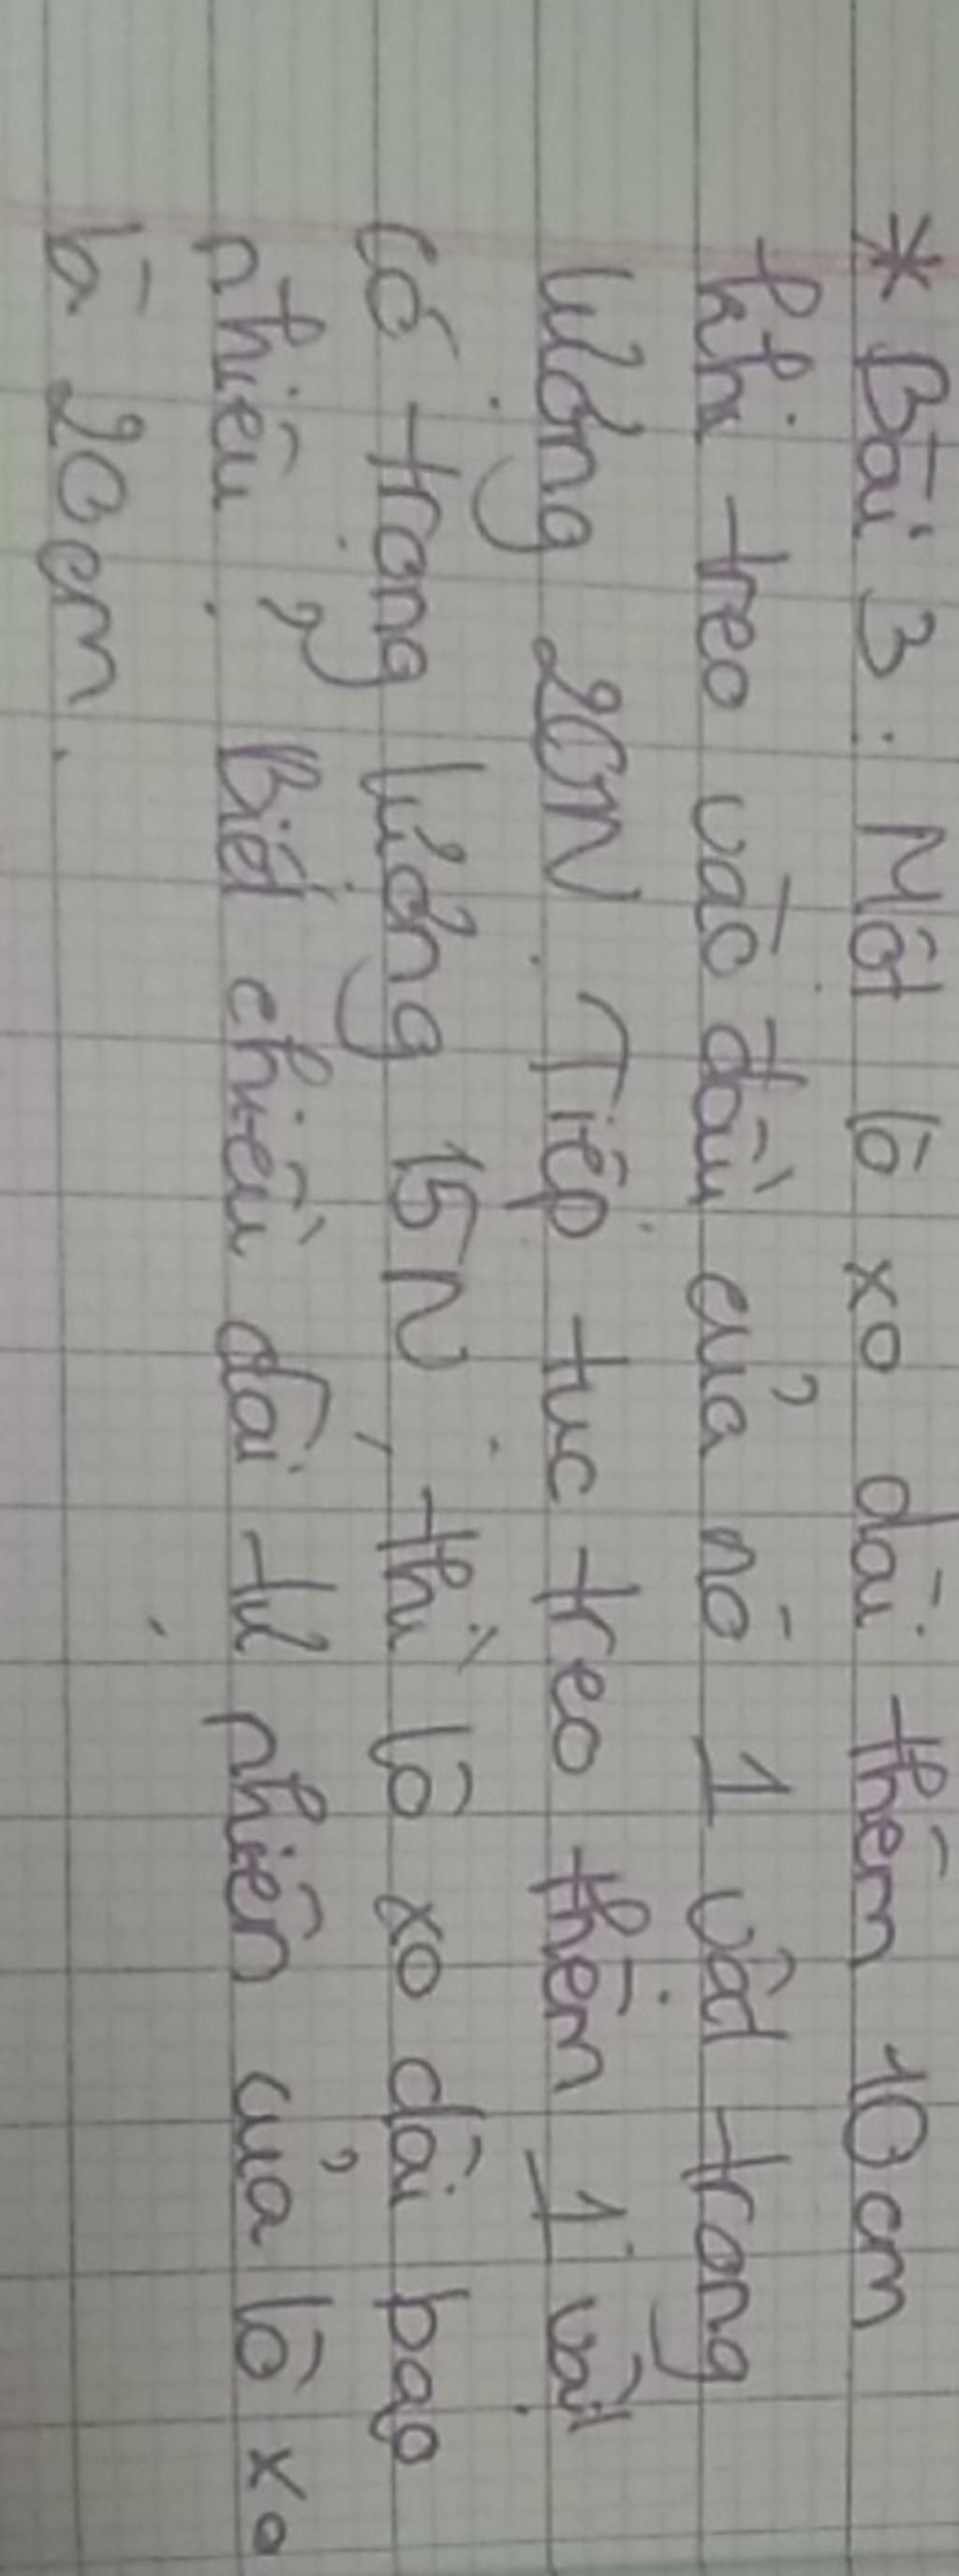 * Bài 3: Một lò xo dài thêm 10cm
khi treo vào đầu của nó 1 vật trọng
lượng 20N. Tiếp tục treo thêm 1 vật
có trọng lượng 15N, thì lò xo dài bao
nhiêu? Biết chiều dài tự nhiên của lò xo
là 20cm.